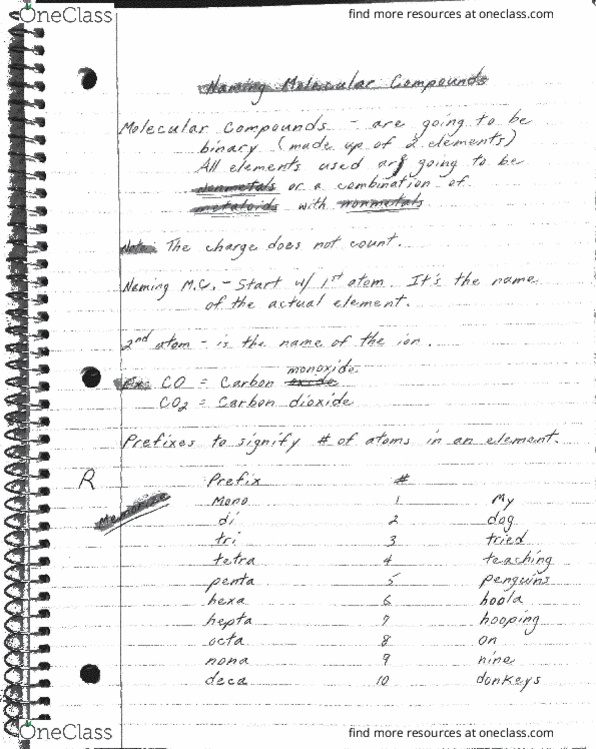 OneClass find more resources at oneclass.com
Naming Molecular Compounds
Molecular Compounds - are going to be
binary (made up of 2 elements)
All elements used are going to be
nonmetals or a combination of
metaloids with nonmetals
Note: The charge does not count.
Naming M.C. - Start w/ 1st atom. It's the name
of the actual element.
2nd atom - is the name of the ion.
monoxide
Ex: CO = Carbon oxide
CO2 = Carbon dioxide
Prefixes to signify # of atoms in an element.
R Prefix #
Memorize
Mono 1 My
di 2 dog
tri 3 tried
tetra 4 teaching
penta 5 penguins
hexa 6 hoola
hepta 7 hooping
octa 8 on
nona 9 nine
deca 10 donkeys
OneClass find more resources at oneclass.com